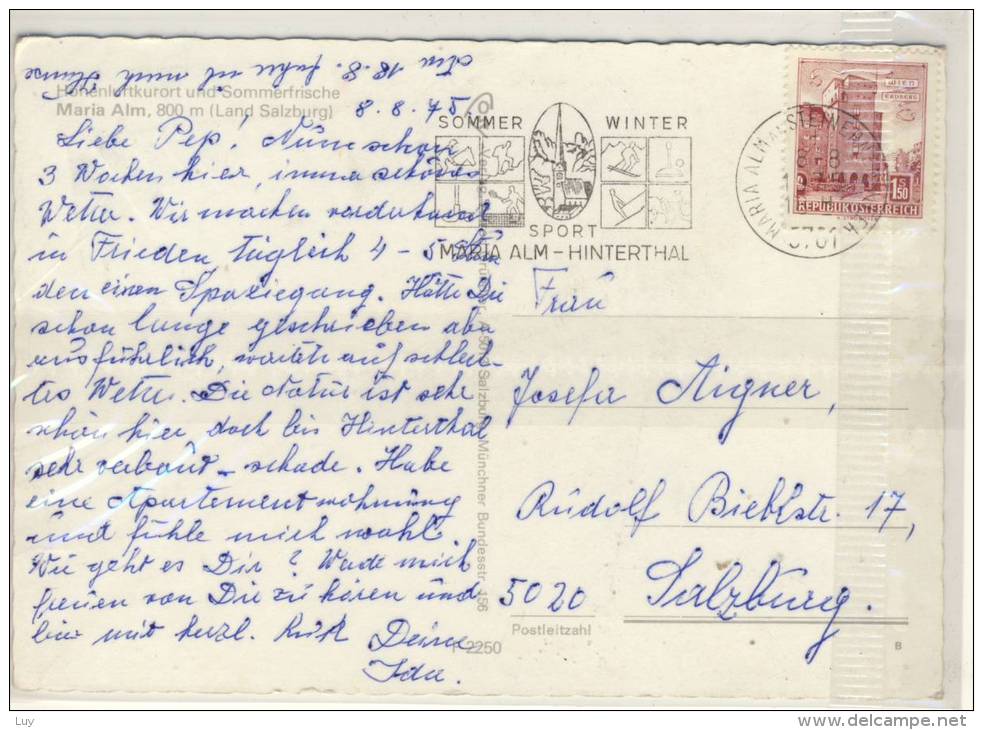 Am 18.8. fahre ich nach Hause
Höhenluftkurort und Sommerfrische
Maria Alm, 800 m (Land Salzburg)
8.8.75
Liebe Pepi! Nun schon
3 Wochen hier, immer schönes
Wetter. Wir machen
in Frieden täglich 4-5 Stun
den einen Spaziegang. Hätte Dir
schon lange geschrieben aber
ausführlich, wartete auf schlech-
tes Wetter. Die Natur ist sehr
schön hier doch bis Hinterthal
sehr verbaut - schade. Habe
eine Apartementwohnung
und fühle mich wohl.
Wie geht es Dir? Würde mich
freuen von Dir zu hören und
bin mit herzl.
Deine
Ida.
SOMMER WINTER
SPORT
MARIA ALM-HINTERTHAL
5761
WIEN
ERDBERG
1.50
REPUBLIK ÖSTERREICH
Salzburg, Münchner Bundesstr. 156
Frau
Josefa Aigner,
Rudolf Bieblstr. 17,
5020 Salzburg.
Postleitzahl
2250
B
Luy
www.delcampe.net